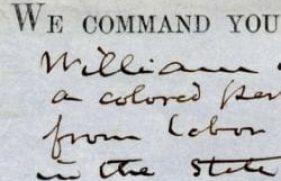 WE COMMAND YOU
William
a colored per
from labor
in the State